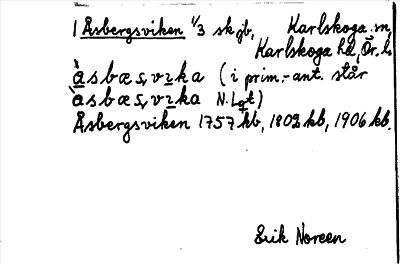 1 Åsbergsviken 1/3 sk jb, Karlskoga sn,
Karlskoga hd, Ör. l.
àsbæṣ,vɪka (i prim.-ant. står
àsbæṣ,vɪka N. Lgt)
Åsbergsviken 1757 kb, 1802 kb, 1906 kb.
Erik Noreen